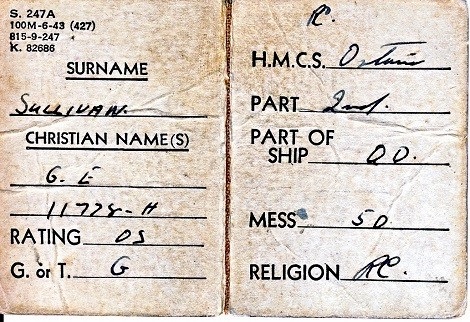 S. 247A
100M-6-43 (427)
815-9-247
K. 82686
SURNAME
SULLIVAN
CHRISTIAN NAME(S)
G. E
11728-H
RATING OS
G. or T. G
RC.
H.M.C.S. Ontario
PART 2nd.
PART OF
SHIP QD.
MESS 50
RELIGION RC.